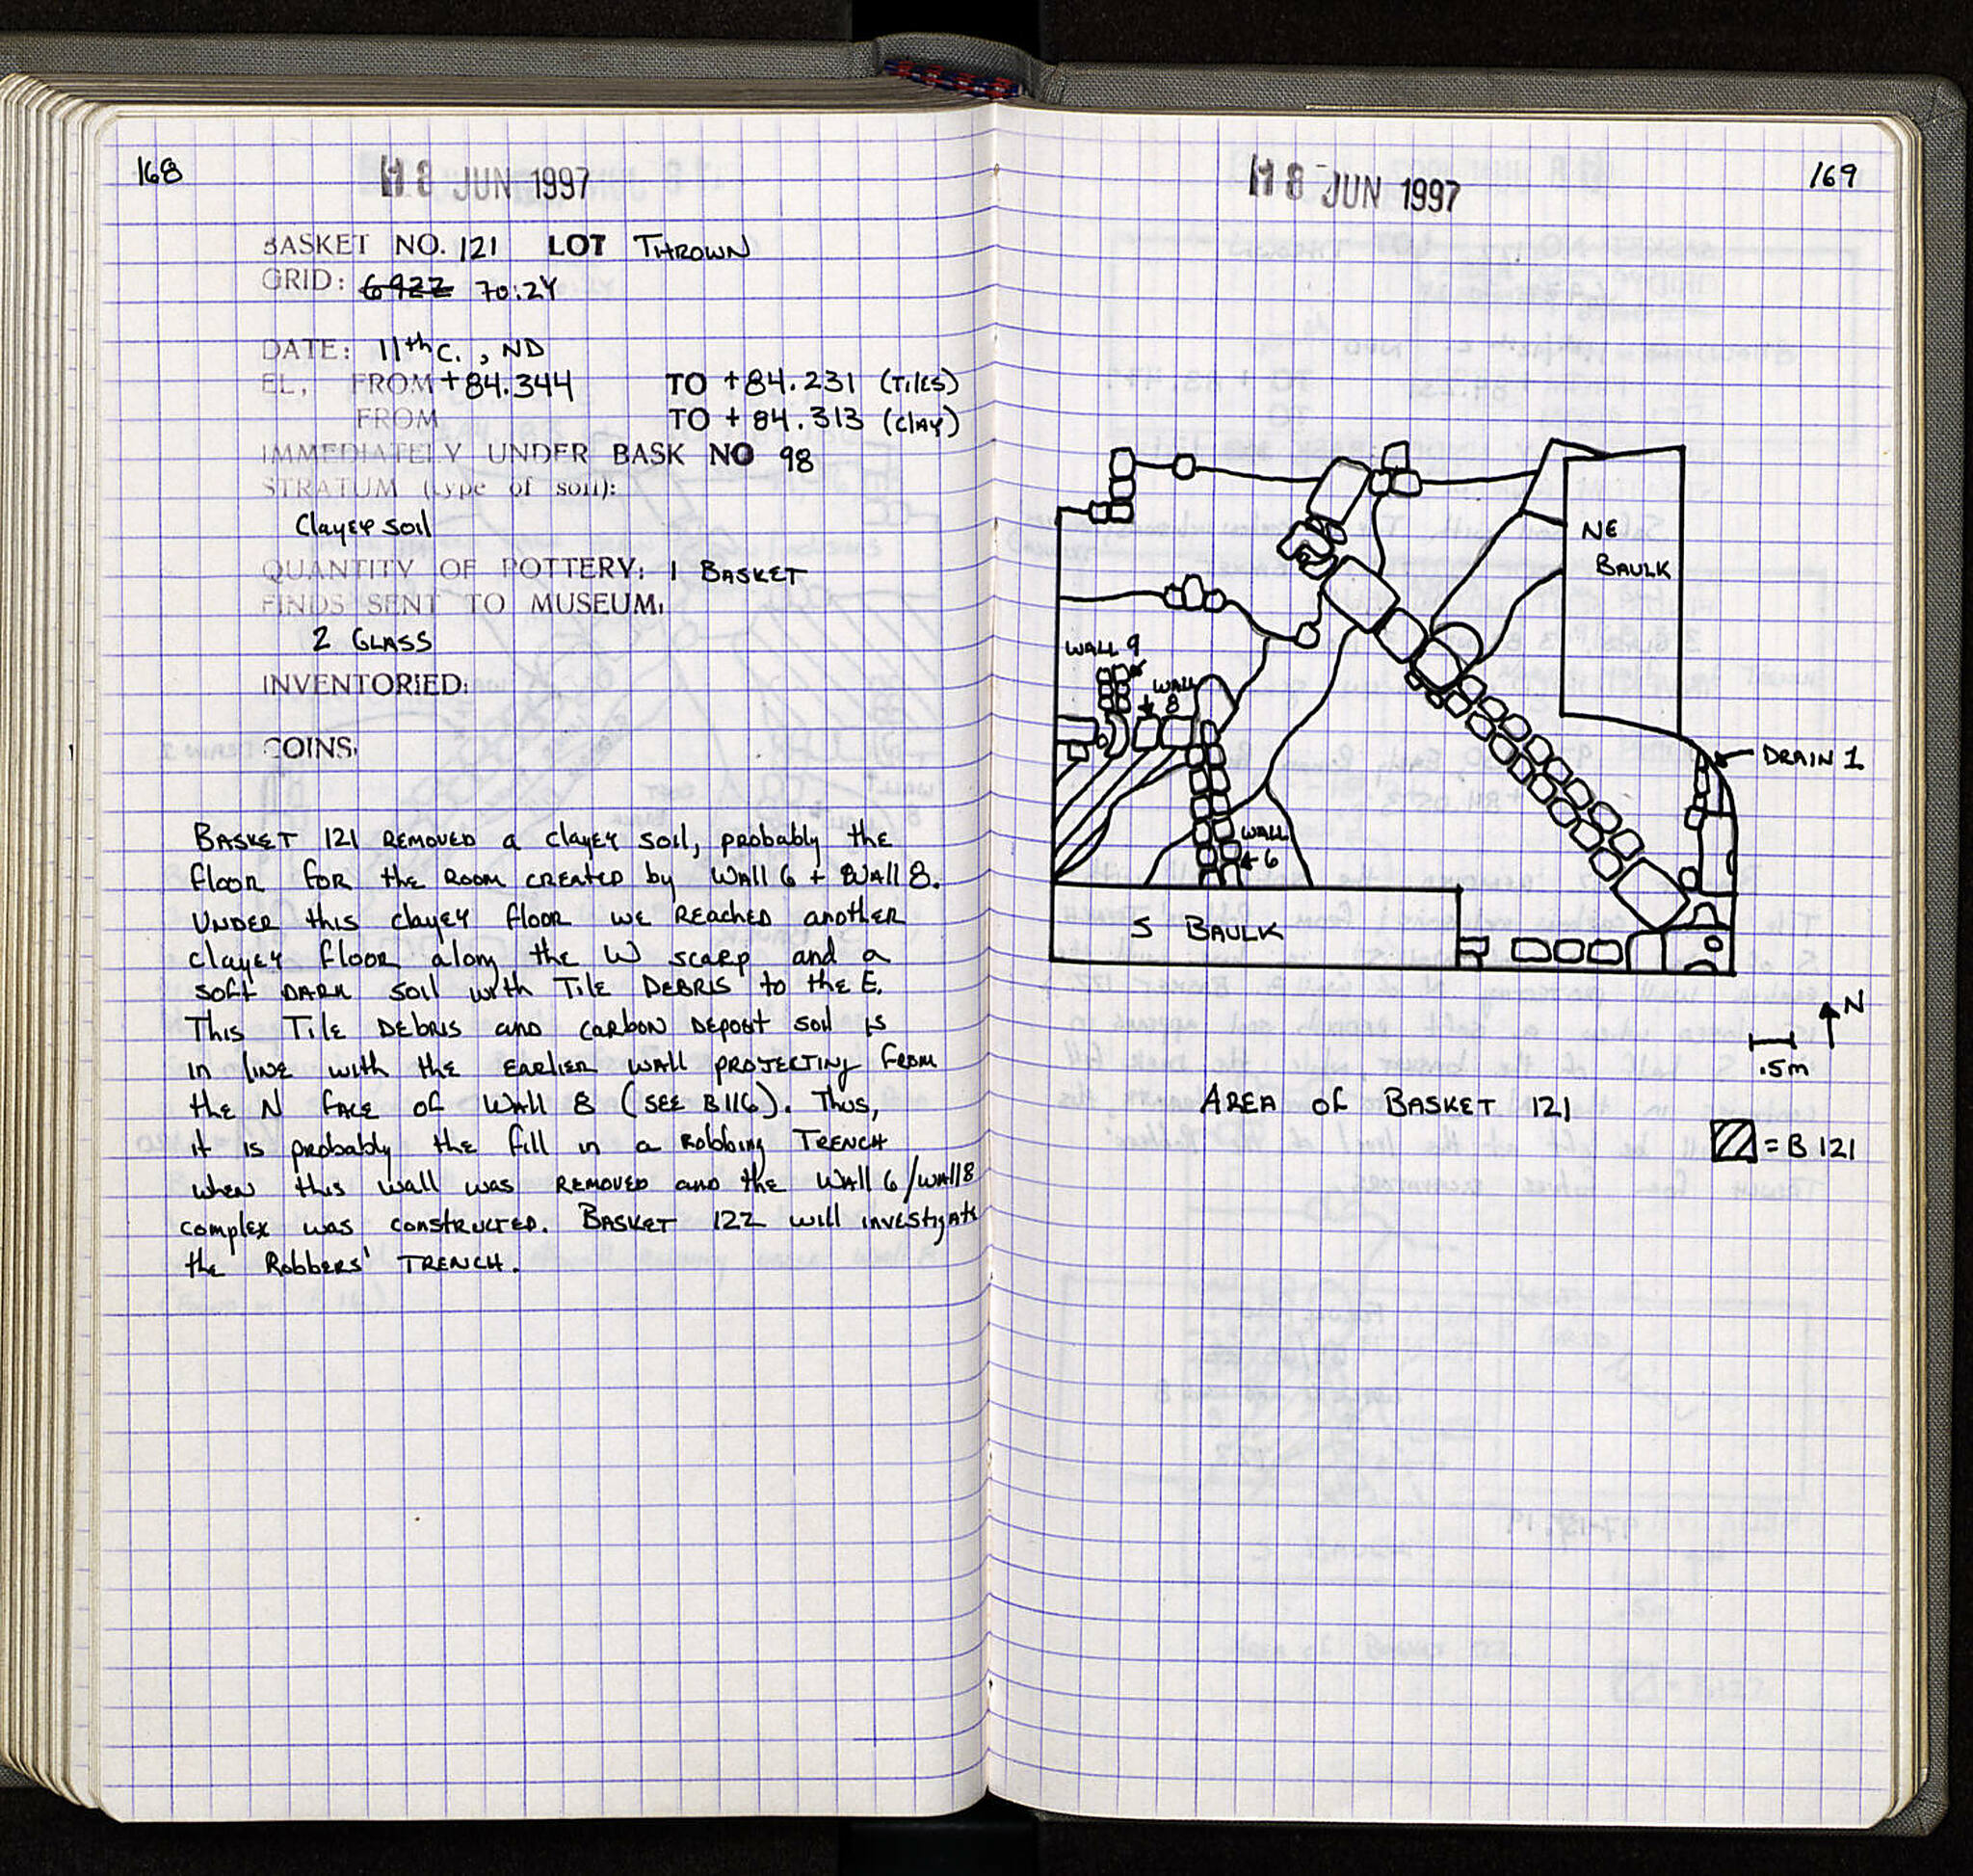 168
18 JUN 1997
BASKET NO. 121 LOT THROWN
GRID: 6922 70:2Y
DATE: 11th C., ND
EL, FROM +84.344 TO +84.231 (TILES)
FROM TO +84.313 (CLAY)
IMMEDIATELY UNDER BASK NO 98
STRATUM (type of soil):
Clayey soil
QUANTITY OF POTTERY: 1 BASKET
FINDS SENT TO MUSEUM:
2 GLASS
INVENTORIED:
COINS:
BASKET 121 REMOVED a clayey soil, probably the
floor for the room created by Wall 6 + Wall 8.
Under this clayey floor we reached another
clayey floor along the W scarp and a
soft DARK soil with Tile DEBRIS to the E.
This Tile DEBRIS and carbon DEPOSIT soil is
in line with the EARLIER wall PROJECTING from
the N face of Wall 8 (SEE B116). Thus,
it is probably the fill in a Robbing TRENCH
when this wall was REMOVED and the Wall 6/Wall 8
complex was constructed. BASKET 122 will investigate
the Robbers' TRENCH.
18 JUN 1997
169
NE
BAULK
WALL 9
WALL
8
DRAIN 1
WALL
6
S BAULK
N
.5m
AREA of BASKET 121
= B 121